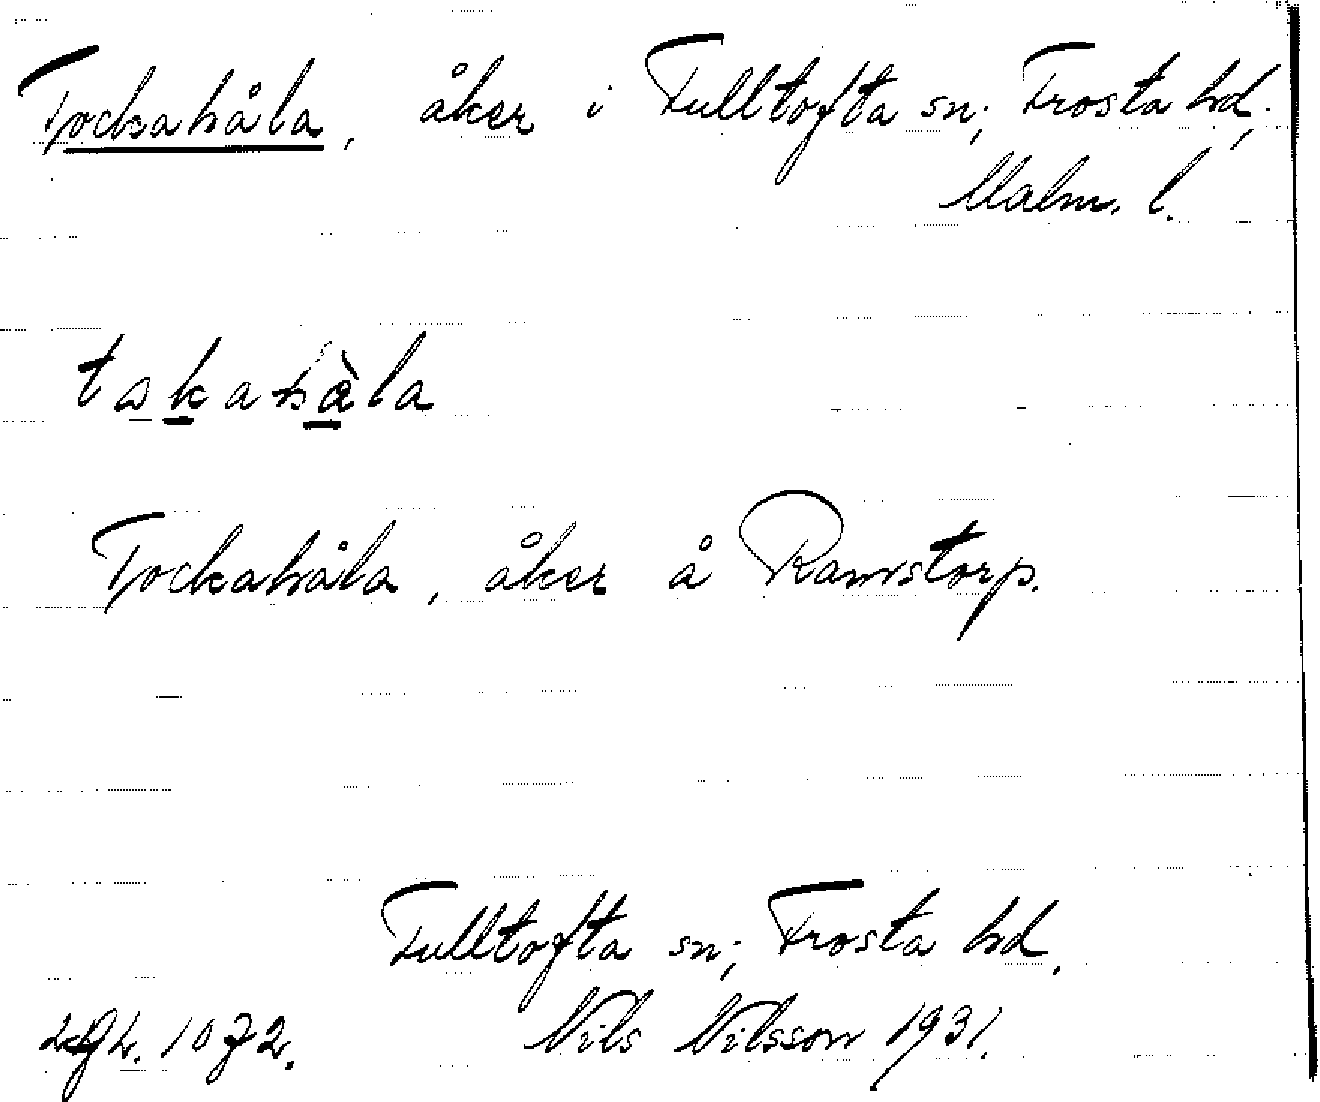 Tockahåla, åker i Fulltofta sn; Frosta hd;
Malm. l.
takahàla
Tockahåla, åker å Ramstorp.
Fulltofta sn; Frosta hd,
1072. Nils Nilsson 1931.